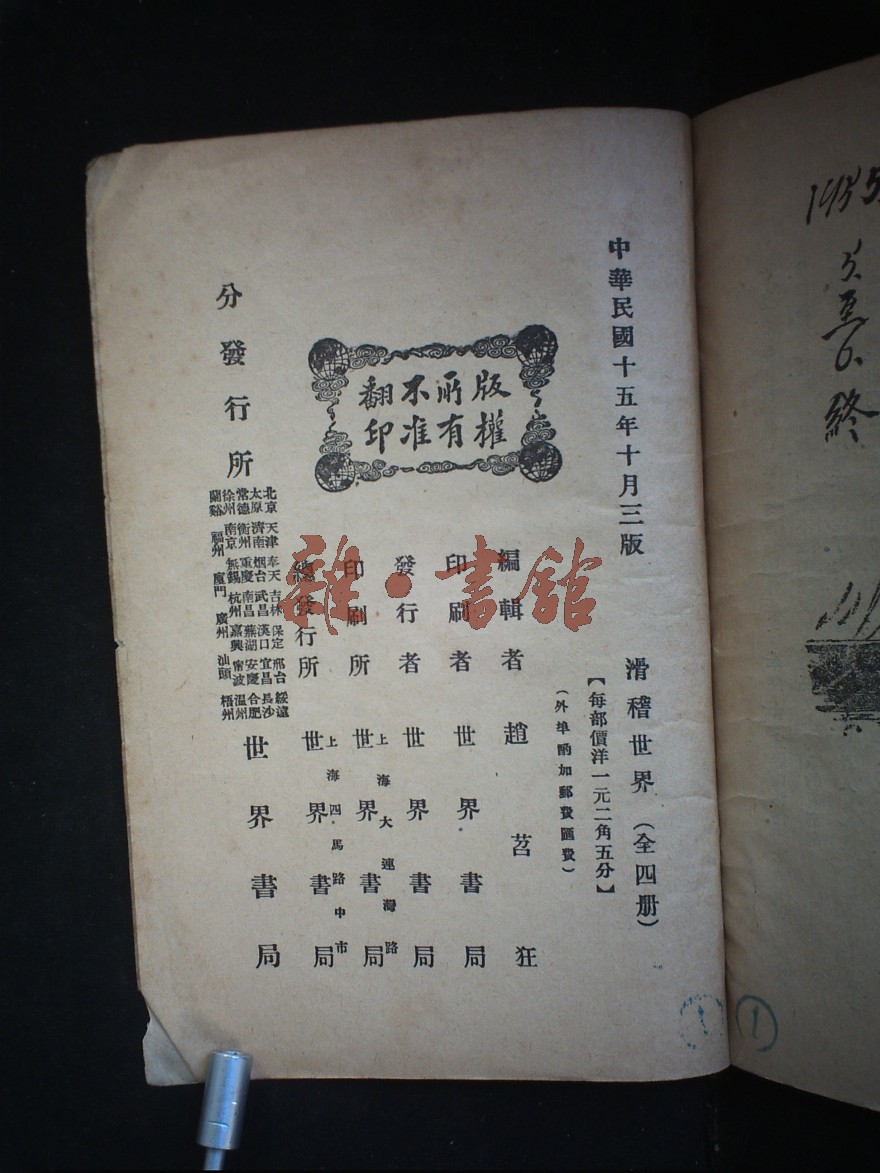 中華民國十五年十月三版
滑稽世界(全四册)
【每部價洋一元二角五分】
(外埠酌加郵費匯費)
版權
所有
不准
翻印
編輯者 趙苕狂
印刷者 世界書局
發行者 世界書局
上海大連灣路
印刷所 世界書局
上海四馬路中市
總發行所 世界書局
分發行所
北京 天津 奉天 吉林 保定 邢台 綏遠
太原 濟南 烟台 武昌 漢口 宜昌 長沙
常德 衡州 重慶 南昌 蕪湖 安慶 合肥
徐州 南京 無錫 杭州 嘉興 甯波 温州
蘭谿 福州 廈門 廣州 汕頭 梧州
世界書局
雜·書館
終
1